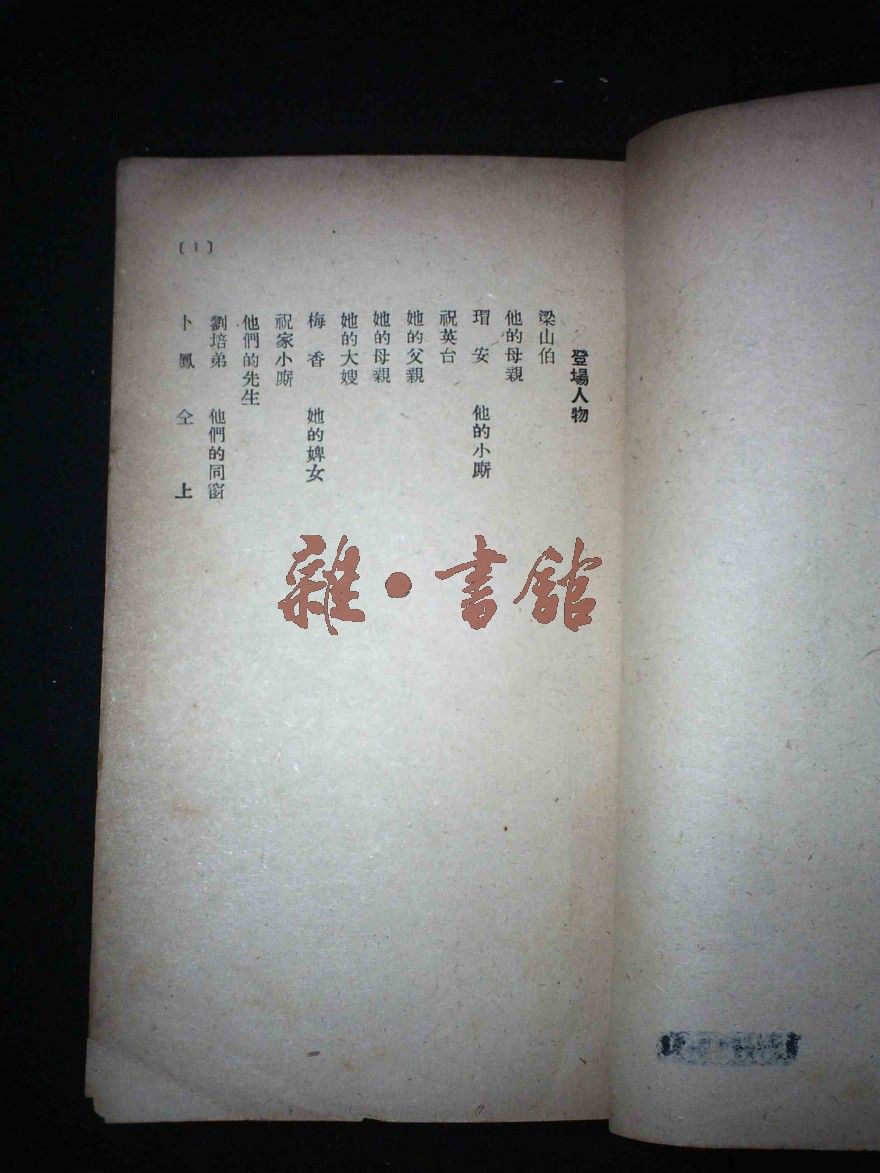 登場人物
梁山伯
他的母親
瑁安 他的小廝
祝英台
她的父親
她的母親
她的大嫂
梅香 她的婢女
祝家小廝
他們的先生
劉培弟 他們的同窗
卜鳳 仝上
〔1〕
雜·書館